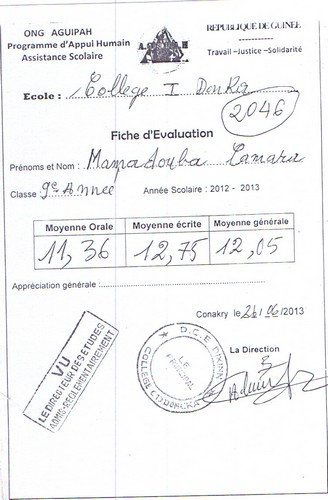 ONG AGUIPAH
Programme d'Appui Humain
Assistance Scolaire
REPUBLIQUE DE GUINEE
Travail –Justice –Solidarité
Ecole : College I Donka
2046
Fiche d'Evaluation
Prénoms et Nom : Mamadouba Camara
Classe : 9e Année Année Scolaire : 2012 - 2013
Moyenne Orale Moyenne écrite Moyenne générale
11,36 12,75 12,05
Appréciation générale :
Conakry le 26/06/2013
La Direction
VU
LE DIRECTEUR DES ETUDES
D.C.E DIXINN
COLLEGE I DONKA
LE
PRINCIPAL